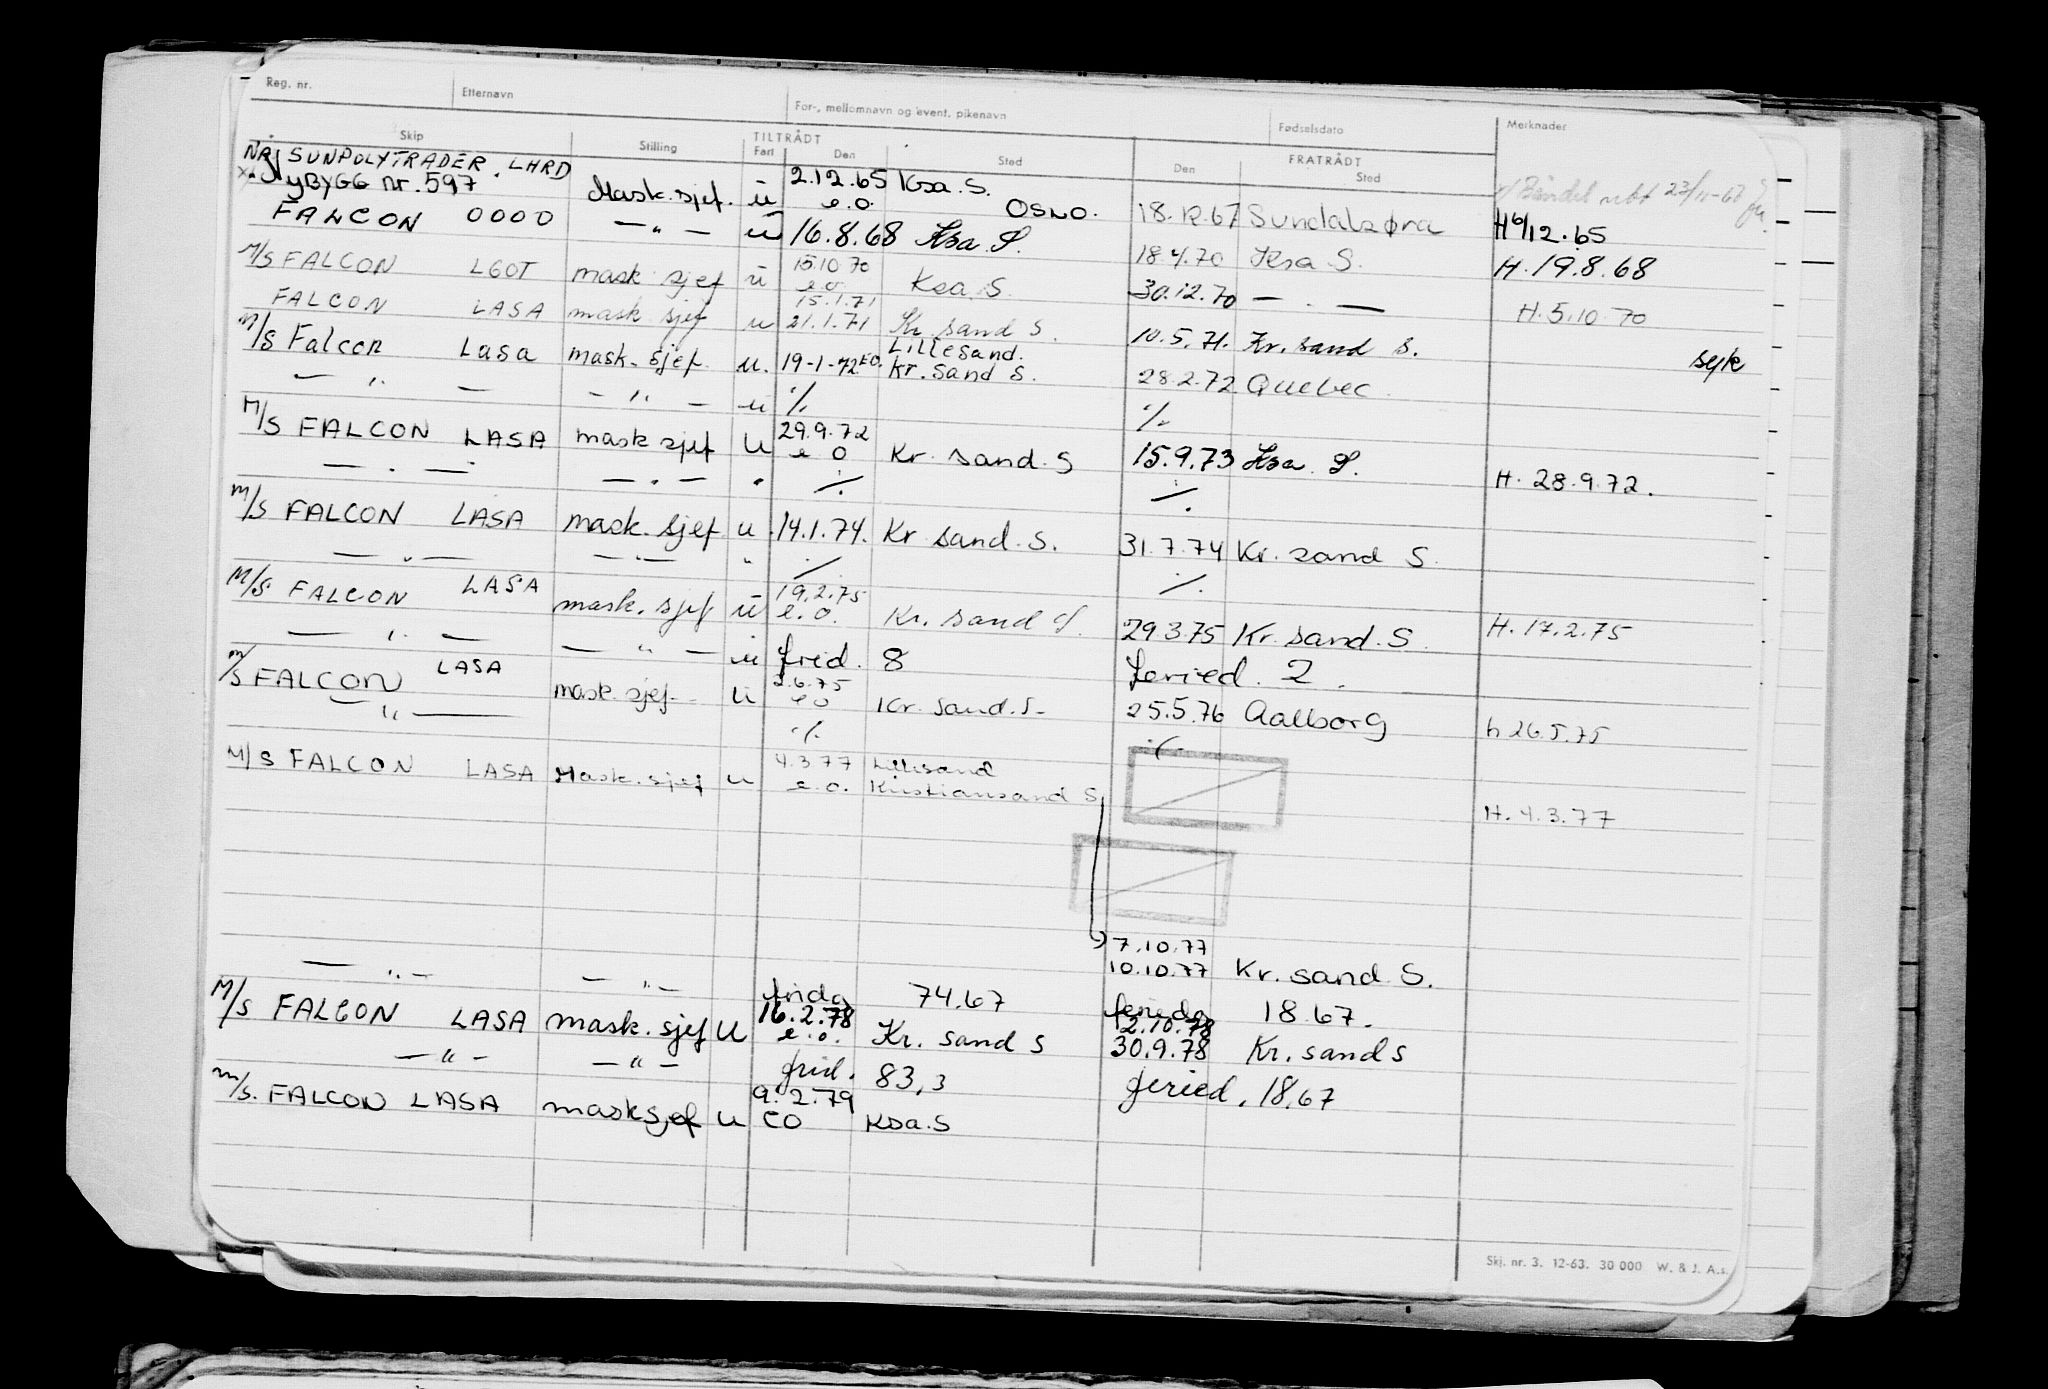 Reg. nr. Etternavn For-, mellomnavn og event. pikenavn Fødselsdato Merknader
Skip Stilling TILTRÅDT Fart Den Sted FRATRÅDT Den Sted
SUNPOLYTRADER. LHRD
NYBYGG nr. 597 Mask. sjef. u 2.12.65 e.o. Ksa. S. OSLO. 18.12.67 Sundalsøra H 6/12.65
FALCON 0000 — " — u 16.8.68 Ksa S. 18.4.70 Ksa S. H. 19.8.68
M/S FALCON LGOT mask sjef u 15.10.70 e.o Ksa. S. 30.12.70 — . — H. 5.10.70
FALCON LASA mask sjef u 15.1.71 21.1.71 Kr. sand S. 10.5.71. Kr. sand S. syk
M/S Falcon Lasa mask. sjef. u. 19-1-72 E.O. Lillesand. Kr. sand S. 28.2.72 Quebec.
— " — — " — u ./. ./.
M/S FALCON LASA mask sjef u 29.9.72 e O Kr. sand. S 15.9.73 Ksa. S. H. 28.9.72.
— . — — . — " ./. ./.
M/S FALCON LASA mask. sjef. u 14.1.74. Kr sand. S. 31.7.74 Kr. sand S.
— " — — " — " ./. ./.
M/S FALCON LASA mask. sjef u 19.2.75 e.o. Kr. sand S. 29.3.75 Kr. sand. S H. 17.2.75
— " — — " — u frid. 8 feried. 2.
M/S FALCON LASA mask. sjef. u 6.75 e o Kr. sand. S. 25.5.76 Aalborg h 26.5.75
— " — ./. ./.
M/S FALCON LASA Mask. sjef u 4.3.77 e.o. Lillesand Kristiansand S H. 4.3.77
7.10.77
10.10.77 Kr. sand S.
— " — — " — frida 74.67 ferieda 18.67.
M/S FALCON LASA mask. sjef u 16.2.78 e.o. Kr. sand S 2.10.78 30.9.78 Kr. sand S
— " — — " — frid. 83,3 feried. 18.67
M/S. FALCON LASA mask sjef u 9.2.79 EO Ksa. S
Skj. nr. 3. 12-63. 30 000 W. & J. A.s.